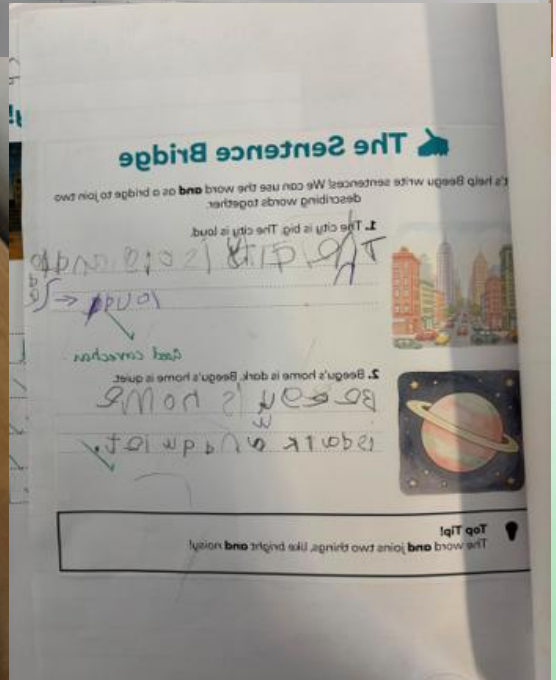 The Sentence Bridge
t's help Beegu write sentences! We can use the word and as a bridge to join two
describing words together.
1. The city is big. The city is loud.
The city is
loud
Good correction
2. Beegu's home is dark. Beegu's home is quiet.
Beegu is home
is dark and quiet.
Top Tip!
The word and joins two things, like bright and noisy!